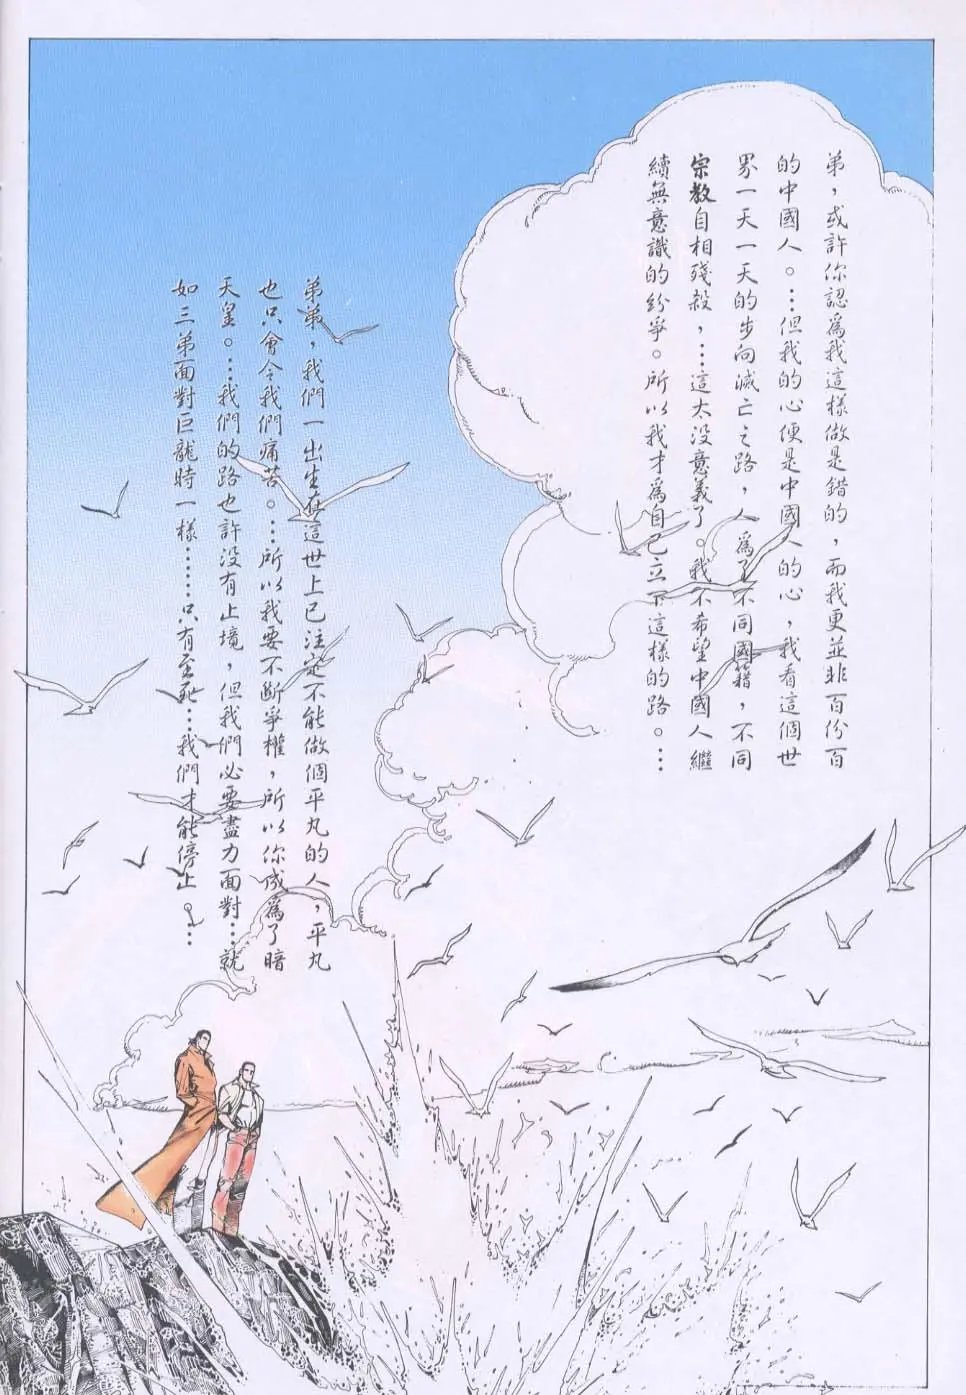 弟，或許你認爲我這樣做是錯的，而我更並非百份百
的中國人。…但我的心便是中國人的心，我看這個世
界一天一天的步向滅亡之路，人爲了不同國籍，不同
宗教自相殘殺，…這太没意義了。我不希望中國人繼
續無意識的紛爭。所以我才爲自己立下這樣的路。…
弟弟，我們一出生在這世上已注定不能做個平凡的人，平凡
也只會令我們痛苦。…所以我要不斷爭權，所以你成爲了暗
天皇。…我們的路也許没有止境，但我們必要盡力面對…就
如三弟面對巨龍時一樣……只有至死…我們才能停止。…